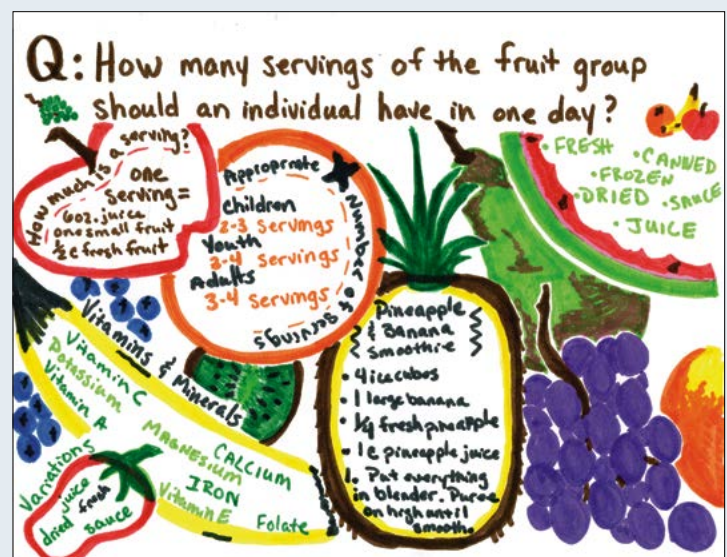 Q: How many servings of the fruit group
should an individual have in one day?
How much is a serving?
one
serving=
6oz. juice
one small fruit
½ c fresh fruit
Appropriate Number of servings
Children
2-3 servings
Youth
3-4 servings
Adults
3-4 servings
• FRESH
• CANNED
• FROZEN
• DRIED
• SAUCE
• JUICE
Vitamins & Minerals
Vitamin C
Potassium
Vitamin A
MAGNESIUM
CALCIUM
IRON
Vitamin E
Folate
Variations
juice
fresh
dried
sauce
Pineapple
& Banana
Smoothie
• 4 ice cubes
• 1 large banana
• ¼ fresh pineapple
- 1c pineapple juice
1. Put everything
in blender. Puree
on high until
smooth.